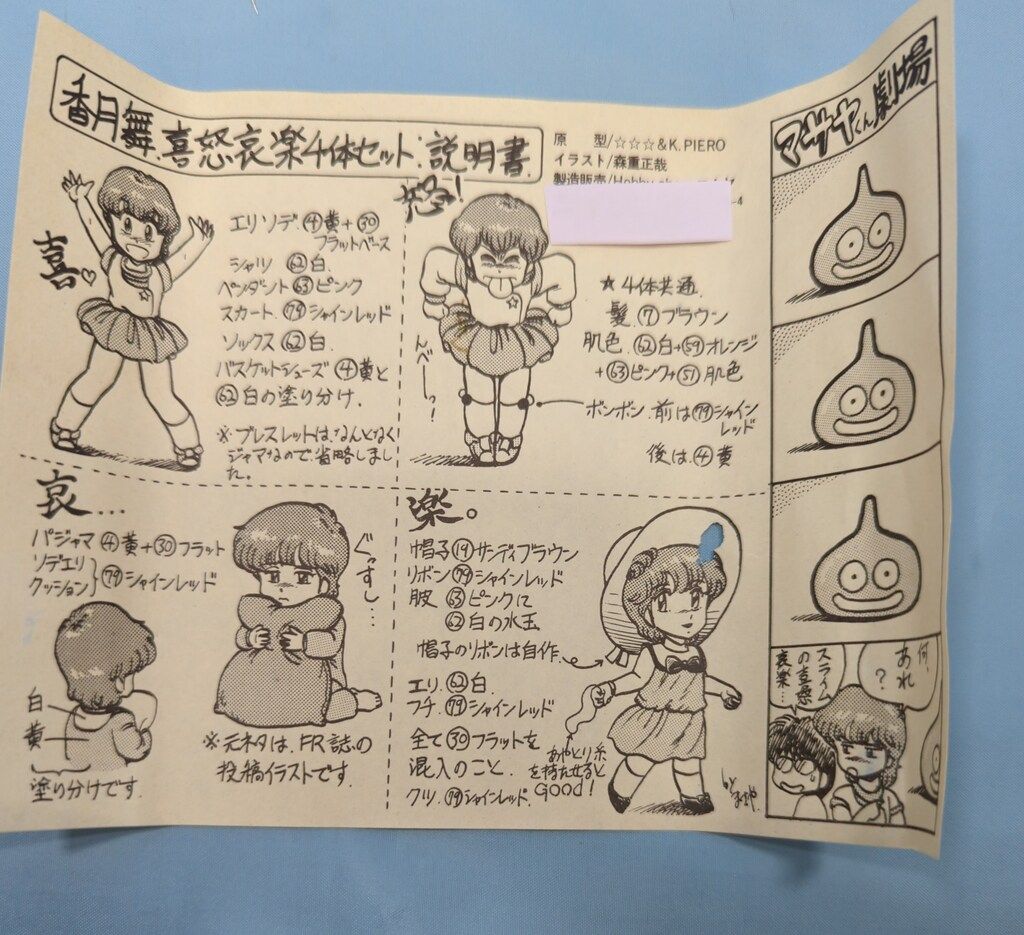 香月舞.喜怒哀楽4体セット:説明書.
原　型/☆☆☆&K.PIERO
イラスト/森重正哉
製造販売/Hobby
-4
喜♡
エリ ソデ.④黄+㉚
フラットベース
シャツ ㊷白.
ペンダント㊸ピンク
スカート.㊴シャインレッド
ソックス ㊷白.
バスケットシューズ ④黄と
㊷白の塗り分け.
※ブレスレットは、なんとなく
ジャマなので、省略しまし
た。
怒!
んべーっ!
★4体共通.
髪.⑦ブラウン
肌色.㊷白+㊾オレンジ
+㊸ピンク+㊿肌色
ボンボン 前は㊴シャイン
レッド
後は.④黄
哀...
パジャマ ④黄+㉚フラット
ソデエリ
クッション}㊴シャインレッド
ぐっすし...
白
黄
塗り分けです.
※元ネタは、FR誌の
投稿イラストです.
楽。
帽子⑲サンディブラウン
リボン㊴シャインレッド
服 ㊸ピンクに
㊷白の水玉
帽子のリボンは自作.
エリ.㊷白.
フチ.㊴シャインレッド
全て㉚フラットを
混入のこと.
クツ.㊴シャインレッド.
あやとり糸
を持たせると
GOOD!
by まさや.
マサヤくん劇場
何、
あれ
?
スライム
の喜怒
哀楽...